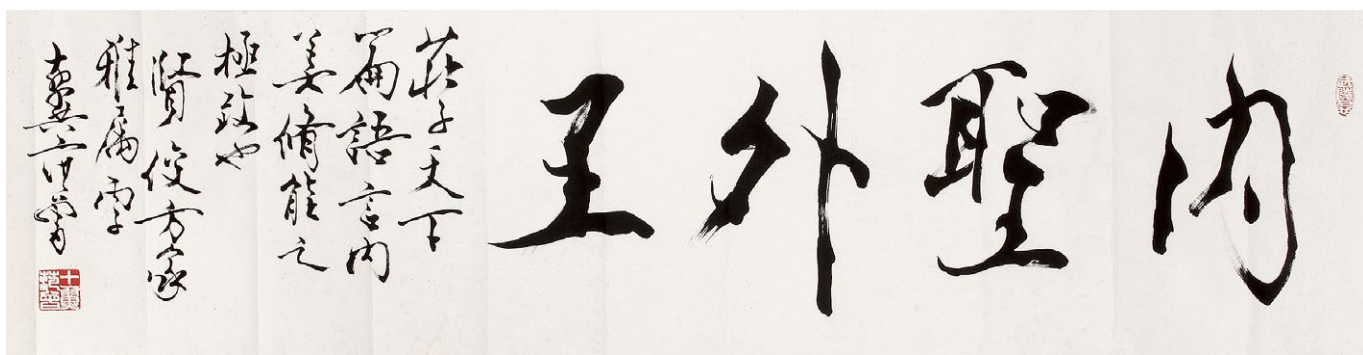 内聖外王
莊子天下
篇語言内
美脩能之
極致也
賢俊方家
雅屬
十翼
范曾